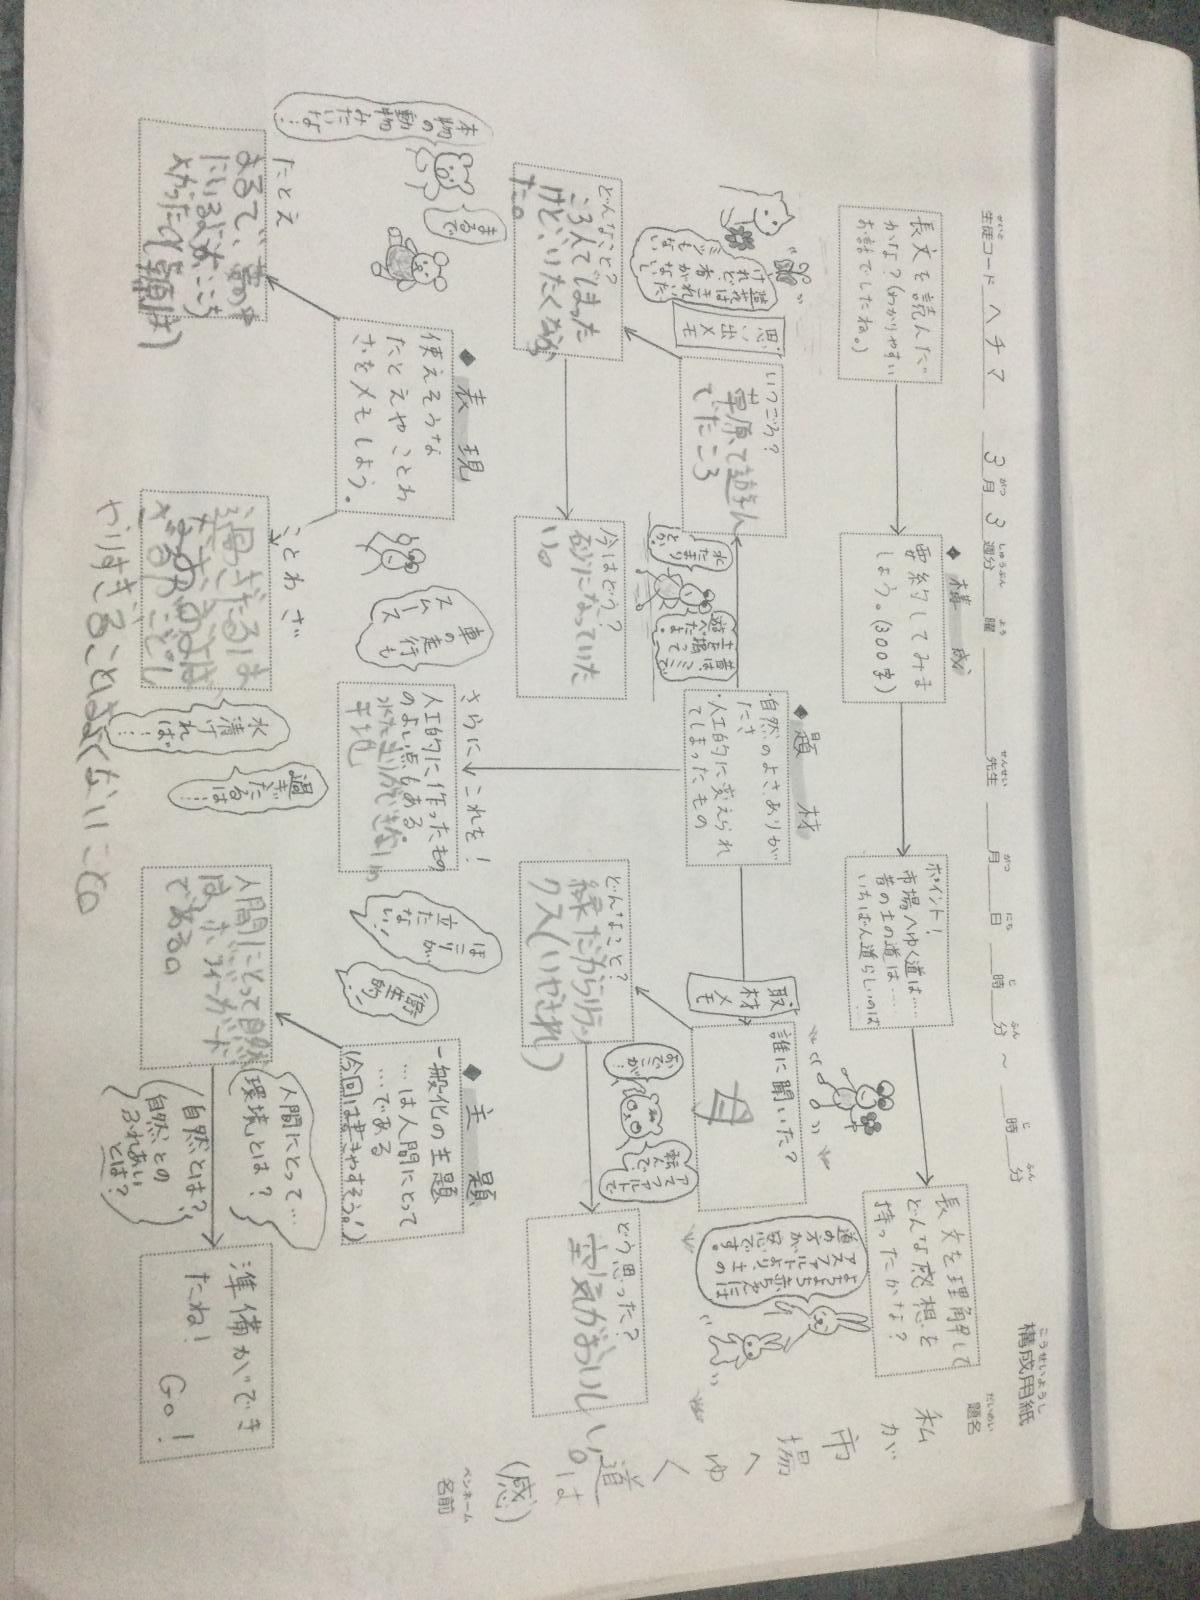 構成用紙
こうせいようし
生徒コード ヘチマ 3月3週分 曜 先生 月 日 時 分 ～ 時 分
題名
だいめい
私が市場へゆく道は(感)
ペンネーム
名前
長文を読んだ
かな?(わかりやすい
お話でしたね。)
◆構成
要約してみま
しょう。(300字)
ポイント!
市場へゆく道は……
昔の土の道は……
いちばん道らしいのは
長文を理解して
どんな感想を
持ったかな?
アスファルトより土の
道の方が安心です。
◆題材
・自然のよさ、ありが
たさ
・人工的に変えられ
てしまったもの
思い出メモ
いつごろ?
草原で遊ん
でたころ
どんなこと?
ころんでしまった
けど、いたくなかっ
た。
今はどう?
砂になっていた
。
水たまり
とか
昔は
土を掘って
遊べたよ
取材メモ
誰に聞いた?
母
どんなこと?
緑だからリラッ
クス(いやされ)
どう思った?
空気がおいしい。
おでこが!
アスファルトで
転んで、
さらに これを!
人工的に作ったもの
のよい点もある
水たまりができない
平地
車の走行も
スムース
ほこりが
立たない!
衛生的!
◆表現
使えそうな
たとえやことわ
ざをメモしよう。
たとえ
まるで、
まるで
本物の
動物
みたいな…
ことわざ
過ぎたるは
なおおよば
ざるがごとし
やりすぎることはよくないこと
水清け
れば…
過ぎ
たるは…
◆主題
一般化の主題
…は人間にとって
…である
(今回は書きやすそう!)
人間にとって自然
は、ボディーガード
である。
人間にとって…
環境とは?
自然とは?
自然との
ふれあい
とは?
準備ができ
たね! GO!